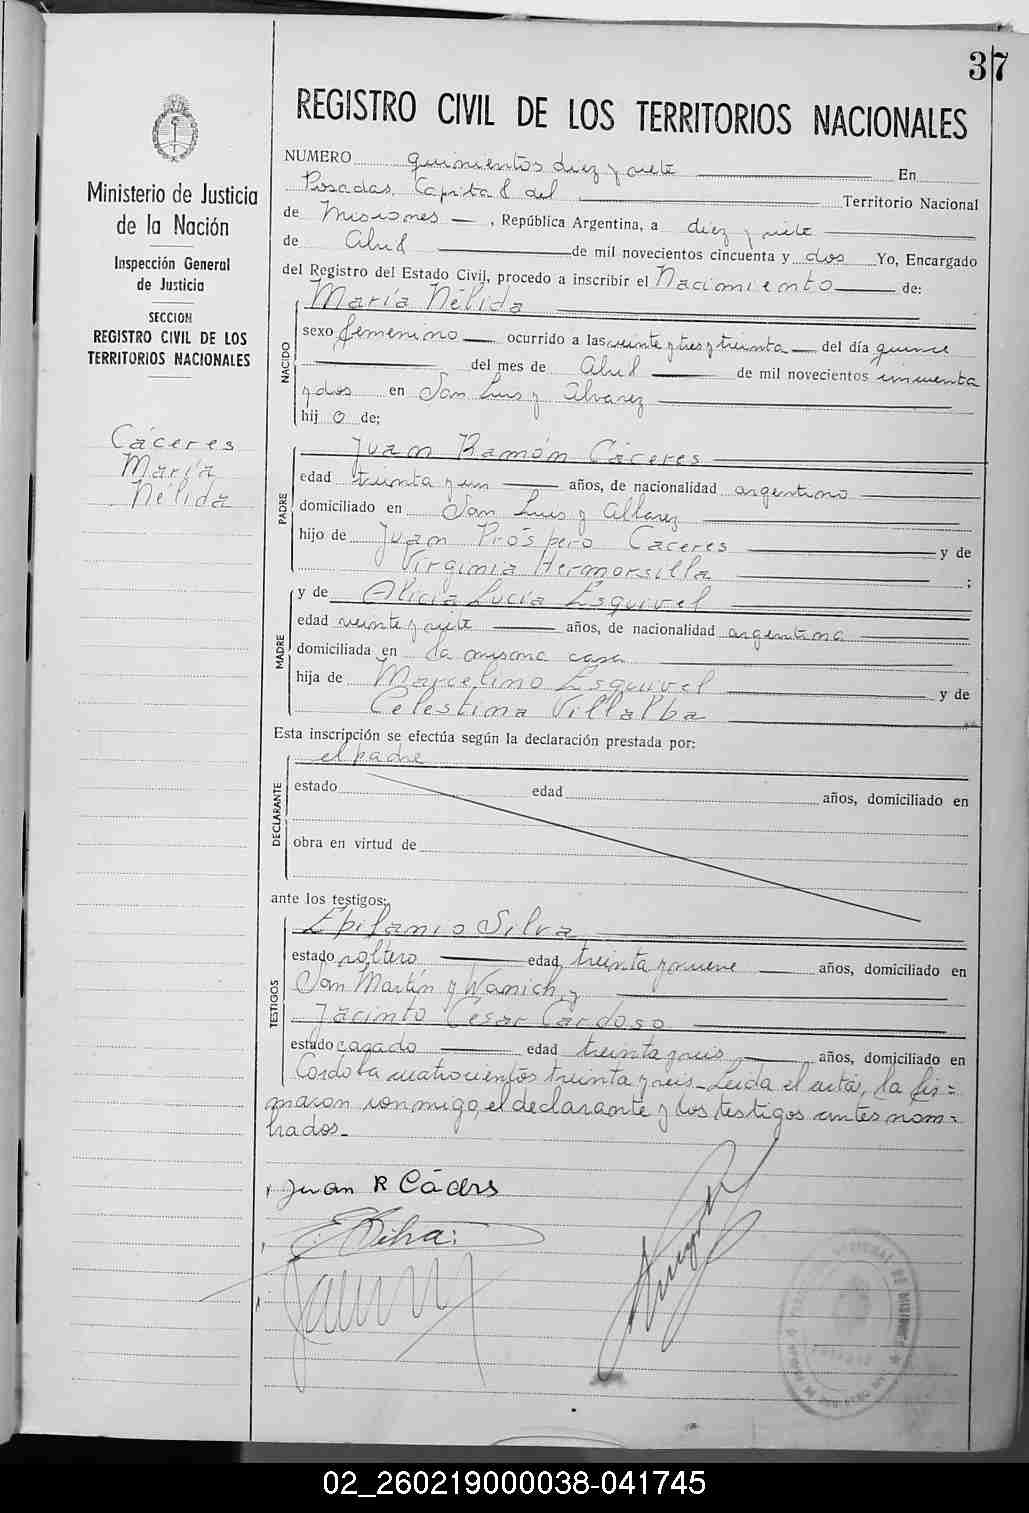 37
REGISTRO CIVIL DE LOS TERRITORIOS NACIONALES
Ministerio de Justicia
de la Nación
Inspección General
de Justicia
SECCION
REGISTRO CIVIL DE LOS
TERRITORIOS NACIONALES
Cáceres
María
Nélida
NUMERO quinientos diez y siete En
Posadas, Capital del Territorio Nacional
de Misiones, República Argentina, a diez y siete
de Abril de mil novecientos cincuenta y dos Yo, Encargado
del Registro del Estado Civil, procedo a inscribir el Nacimiento de:
NACIDO
María Nélida
sexo femenino ocurrido a las veinte y tres y treinta del día quince
del mes de Abril de mil novecientos cincuenta
y dos en San Luis y Alvarez
hij o de;
PADRE
Juan Ramón Cáceres
edad treinta y un años, de nacionalidad argentino
domiciliado en San Luis y Alvarez
hijo de Juan Próspero Caceres y de
Virginia Hermorsilla ;
MADRE
y de Alicia Lucía Esquivel
edad veinte y siete años, de nacionalidad argentina
domiciliada en la misma casa
hija de Marcelino Esquivel y de
Celestina Villalba
Esta inscripción se efectúa según la declaración prestada por:
DECLARANTE
el padre
estado edad años, domiciliado en
obra en virtud de
ante los testigos:
TESTIGOS
Epifanio Silva
estado soltero edad treinta y nueve años, domiciliado en
San Martín y Wanich, y
Jacinto Cesar Cardoso
estado casado edad treinta y seis años, domiciliado en
Cordoba cuatrocientos treinta y seis_Leida el acta, la fir=
maron conmigo, el declarante y los testigos antes nom=
brados_
Juan R Cáceres
E Silva
02_260219000038-041745